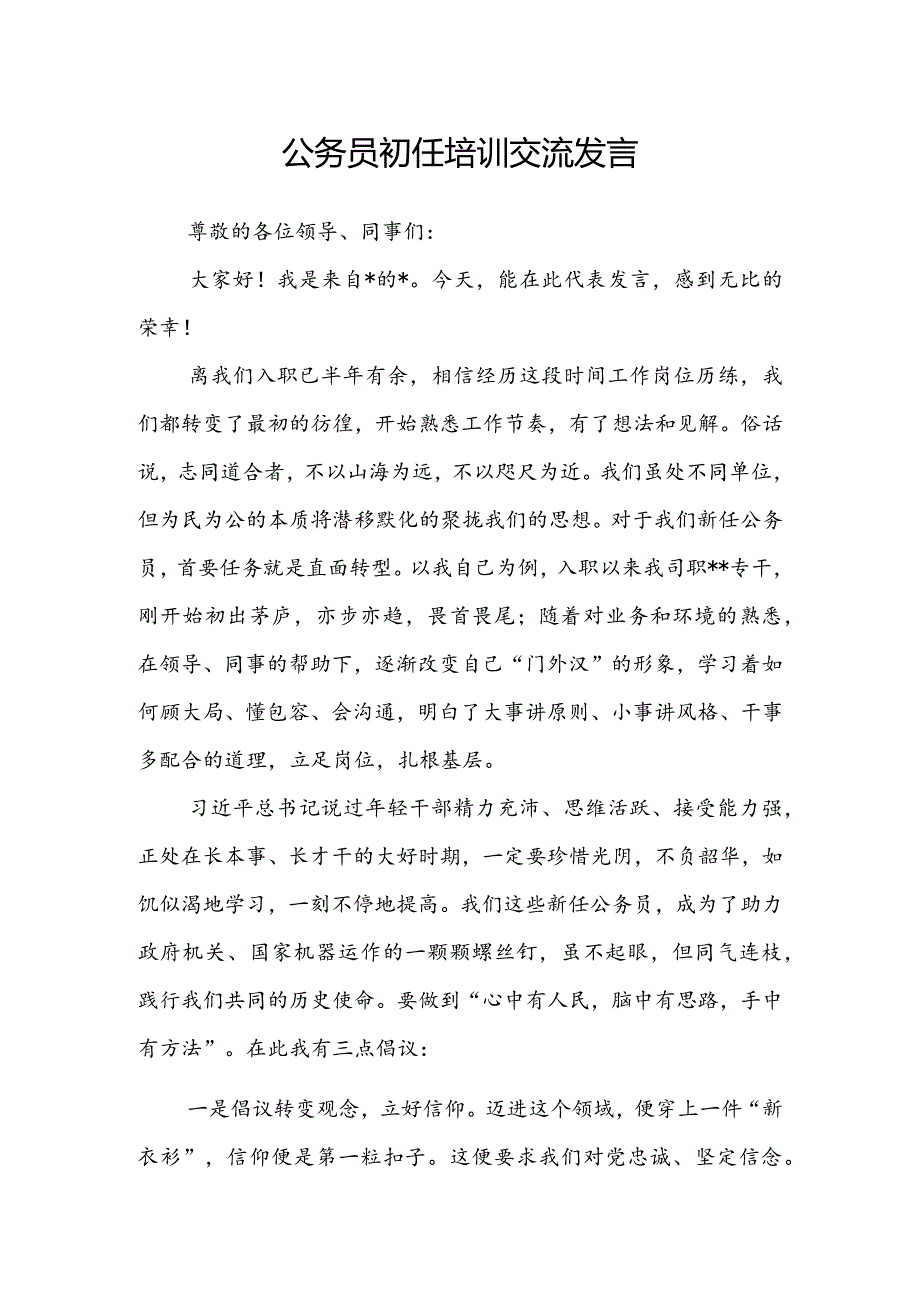 公务员初任培训交流发言
尊敬的各位领导、同事们：
大家好！我是来自*的*。今天，能在此代表发言，感到无比的
荣幸！
离我们入职已半年有余，相信经历这段时间工作岗位历练，我
们都转变了最初的彷徨，开始熟悉工作节奏，有了想法和见解。俗话
说，志同道合者，不以山海为远，不以咫尺为近。我们虽处不同单位，
但为民为公的本质将潜移默化的聚拢我们的思想。对于我们新任公务
员，首要任务就是直面转型。以我自己为例，入职以来我司职**专干，
刚开始初出茅庐，亦步亦趋，畏首畏尾；随着对业务和环境的熟悉，
在领导、同事的帮助下，逐渐改变自己“门外汉”的形象，学习着如
何顾大局、懂包容、会沟通，明白了大事讲原则、小事讲风格、干事
多配合的道理，立足岗位，扎根基层。
习近平总书记说过年轻干部精力充沛、思维活跃、接受能力强，
正处在长本事、长才干的大好时期，一定要珍惜光阴，不负韶华，如
饥似渴地学习，一刻不停地提高。我们这些新任公务员，成为了助力
政府机关、国家机器运作的一颗颗螺丝钉，虽不起眼，但同气连枝，
践行我们共同的历史使命。要做到“心中有人民，脑中有思路，手中
有方法”。在此我有三点倡议：
一是倡议转变观念，立好信仰。迈进这个领域，便穿上一件“新
衣衫”，信仰便是第一粒扣子。这便要求我们对党忠诚、坚定信念。